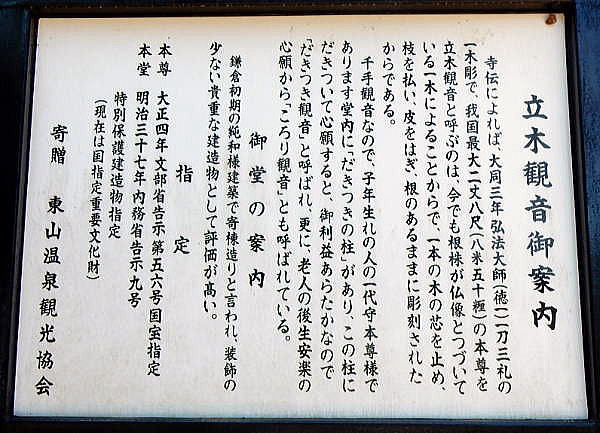 立木観音御案内
寺伝によれば、大同三年弘法大師(徳一)一刀三礼の
一木彫で、我国最大二丈八尺(八米五十糎)の本尊を
立木観音と呼ぶのは、今でも根株が仏像とつづいて
いる一木によることからで、一本の木の芯を止め、
枝を払い、皮をはぎ、根のあるままに彫刻された
からである。
千手観音なので、子年生れの人の一代守本尊様で
あります堂内に「だきつきの柱」があり、この柱に
だきついて心願すると、御利益あらたかなので
「だきつき観音」と呼ばれ、更に、老人の後生安楽の
心願から「ころり観音」とも呼ばれている。
御堂の案内
鎌倉初期の純和様建築で寄棟造りと言われ、装飾の
少ない貴重な建造物として評価が高い。
指定
本尊 大正四年文部省告示第五六号国宝指定
本堂 明治三十七年内務省告示九号
特別保護建造物指定
(現在は国指定重要文化財)
寄贈 東山温泉観光協会